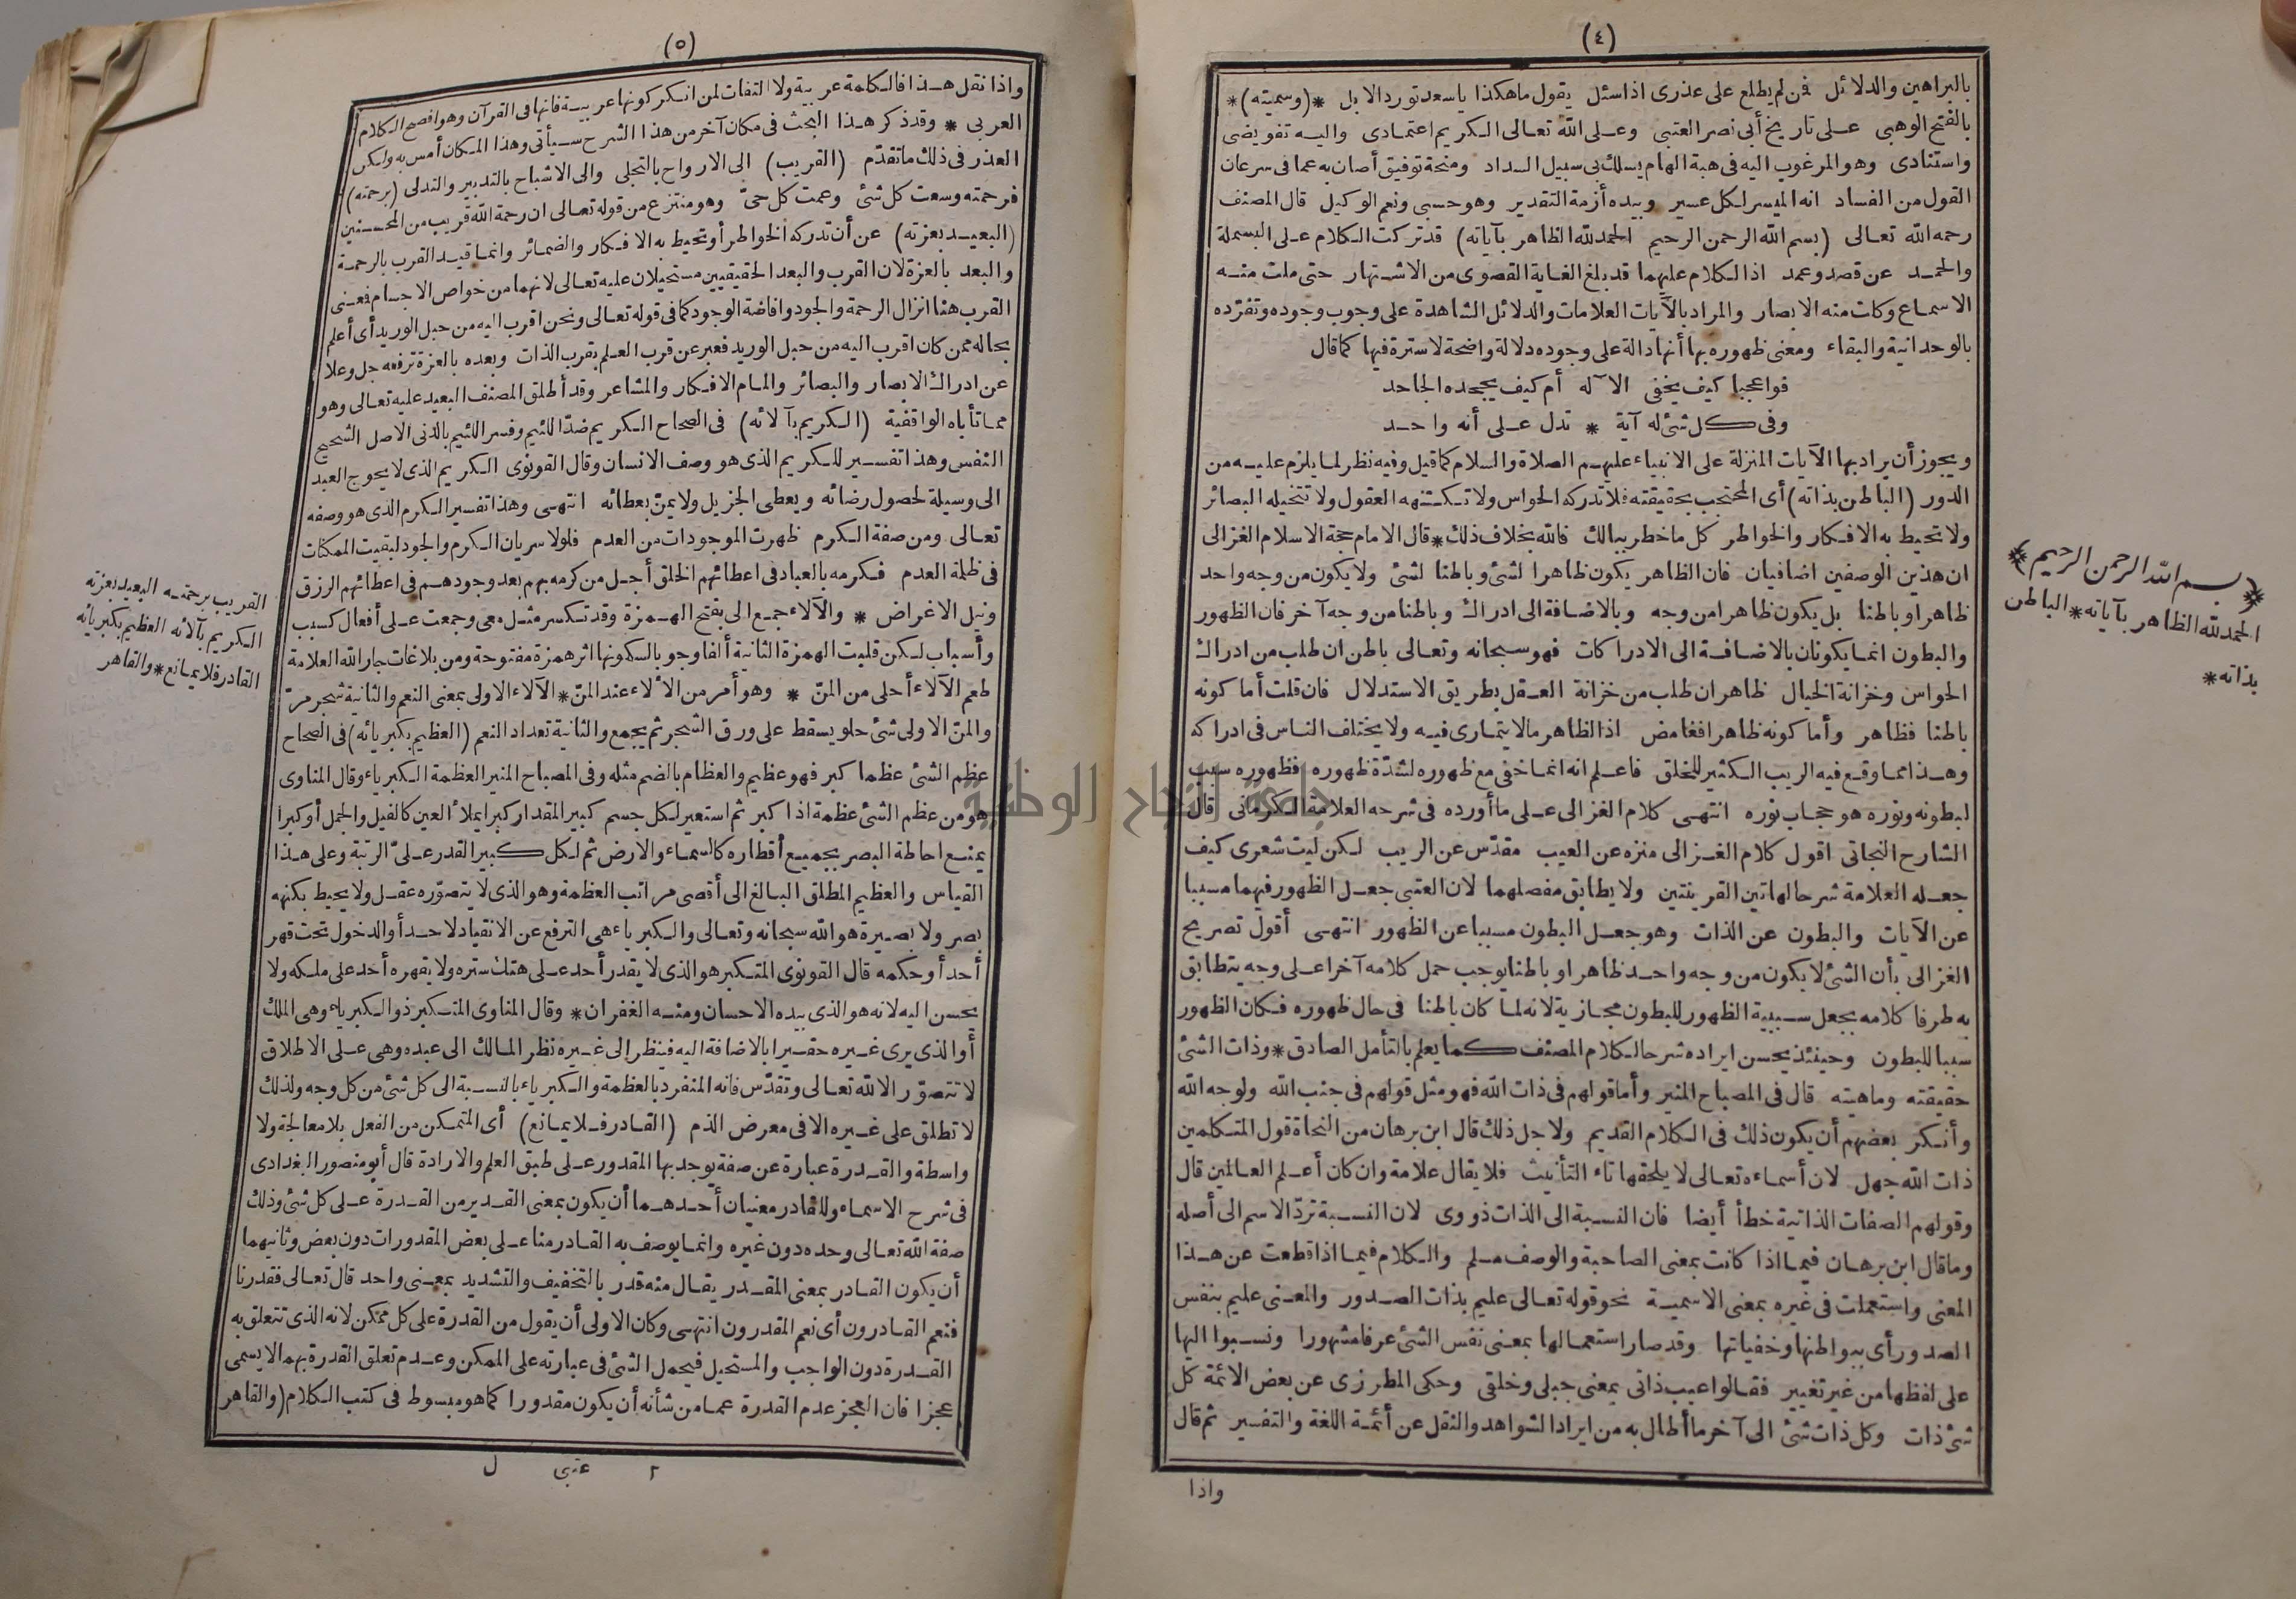 (٤)
بالبراهين والدلائل فمن لم يطلع على عذرى اذا سئل يقول ما هكذا يا سعد تورد الابل * (وسميته) *
بالفتح الوهبى على تاريخ أبى نصر العتبى وعلى الله تعالى الكريم اعتمادى واليه تفويضى
واستنادى وهو المرغوب اليه فى هبة الهام يسلك بى سبيل السداد ومنحة توفيق أصان به عما فى سرعان
القول من الفساد انه الميسر لكل عسير وبيده أزمة التقدير وهو حسبى ونعم الوكيل قال المصنف
رحمه الله تعالى (بسم الله الرحمن الرحيم الحمد لله الظاهر بآياته) قد تركت الكلام على البسملة
والحمد عن قصد وعمد اذ الكلام عليهما قد بلغ الغاية القصوى من الاشتهار حتى ملت منه
الاسماع وكلت منه الابصار والمراد بالآيات العلامات والدلائل الشاهدة على وجوب وجوده وتفرّده
بالوحدانية والبقاء ومعنى ظهوره بها أنها دالة على وجوده دلالة واضحة لا سترة فيها كما قال
فواعجبا كيف يخفى الاله أم كيف يجحده الجاحد
وفى كل شئ له آية * تدل على أنه واحد
ويجوز أن يراد بها الآيات المنزلة على الانبياء عليهم الصلاة والسلام كما قيل وفيه نظر لما يلزم عليه من
الدور (الباطن بذاته) أى المحتجب بحقيقته فلا تدركه الحواس ولا تكتنهه العقول ولا تتخيله البصائر
ولا تحيط به الافكار والخواطر كل ما خطر ببالك فالله بخلاف ذلك * قال الامام حجة الاسلام الغزالى
ان هذين الوصفين اضافيان فان الظاهر يكون ظاهرا لشئ وباطنا لشئ ولا يكون من وجه واحد
ظاهرا وباطنا بل يكون ظاهرا من وجه وبالاضافة الى ادراك وباطنا من وجه آخر فان الظهور
والبطون انما يكونان بالاضافة الى الادراكات فهو سبحانه وتعالى باطن ان طلب من ادراك
الحواس وخزانة الخيال ظاهر ان طلب من خزانة العقل بطريق الاستدلال فان قلت أما كونه
باطنا فظاهر وأما كونه ظاهرا فغامض اذ الظاهر ما لا يتمارى فيه ولا يختلف الناس فى ادراكه
وهذا مما وقع فيه الريب الكثير للخلق فاعلم انه انما خفى مع ظهوره لشدّة ظهوره فظهوره سبب
لبطونه ونوره هو حجاب نوره انتهى كلام الغزالى على ما أورده فى شرحه العلامة الكرمانى قال
الشارح النجاتى اقول كلام الغزالى منزه عن العيب مقدّس عن الريب لكن ليت شعرى كيف
جعله العلامة شرحا لهاتين القرينتين ولا يطابق مفصلهما لان العتبى جعل الظهور فيهما مسببا
عن الآيات والبطون عن الذات وهو جعل البطون مسببا عن الظهور انتهى أقول تصريح
الغزالى بأن الشئ لا يكون من وجه واحد ظاهرا وباطنا يوجب حمل كلامه آخرا على وجه يتطابق
به طرفا كلامه بجعل سببية الظهور للبطون مجازية لانه لما كان باطنا فى حال ظهوره فكان الظهور
سببا للبطون وحينئذ يحسن ايراده شرحا لكلام المصنف كما يعلم بالتأمل الصادق * وذات الشئ
حقيقته وماهيته قال فى المصباح المنير وأما قولهم فى ذات الله فهو مثل قولهم فى جنب الله ولوجه الله
وأنكر بعضهم أن يكون ذلك فى الكلام القديم ولاجل ذلك قال ابن برهان من النحاة قول المتكلمين
ذات الله جهل لان أسماءه تعالى لا يلحقها تاء التأنيث فلا يقال علامة وان كان أعلم العالمين قال
وقولهم الصفات الذاتية خطأ أيضا فان النسبة الى الذات ذووى لان النسبة تردّ الاسم الى أصله
وما قال ابن برهان فيما اذا كانت بمعنى الصاحبة والوصف مسلم والكلام فيما اذا قطعت عن هذا
المعنى واستعملت فى غيره بمعنى الاسمية نحو قوله تعالى عليم بذات الصدور والمعنى عليم بنفس
الصدور أى ببواطنها وخفياتها وقد صار استعمالها بمعنى نفس الشئ عرفا مشهورا ونسبوا اليها
على لفظها من غير تغيير فقالوا عيب ذاتى بمعنى جبلى وخلقى وحكى المطرزى عن بعض الائمة كل
شئ ذات وكل ذات شئ الى آخر ما أطال به من ايراد الشواهد والنقل عن أئمة اللغة والتفسير ثم قال
واذا
﴿بسم الله الرحمن الرحيم﴾
الحمد لله الظاهر بآياته * الباطن
بذاته *
(٥)
واذا نقل هذا فالكلمة عربية ولا التفات لمن انكر كونها عربية فانها فى القرآن وهو افصح الكلام
العربى * وقد ذكر هذا البحث فى مكان آخر من هذا الشرح سيأتى وهذا المكان أمس به ولكن
العذر فى ذلك ما تقدّم (القريب) الى الارواح بالتجلى والى الاشباح بالتدبير والتدلى (برحمته)
فرحمته وسعت كل شئ وعمت كل حىّ وهو منتزع من قوله تعالى ان رحمة الله قريب من المحسنين
(البعيد بعزته) عن أن تدركه الخواطر أو تحيط به الافكار والضمائر وانما قيد القرب بالرحمة
والبعد بالعزة لان القرب والبعد الحقيقيين مستحيلان عليه تعالى لانهما من خواص الاجسام فمعنى
القرب هنا انزال الرحمة والجود وافاضة الوجود كما فى قوله تعالى ونحن اقرب اليه من حبل الوريد أى أعلم
بحاله ممن كان اقرب اليه من حبل الوريد فعبر عن قرب العلم بقرب الذات وبعده بالعزة ترفعه جل وعلا
عن ادراك الابصار والبصائر والمام الافكار والمشاعر وقد أطلق المصنف البعيد عليه تعالى وهو
مما تأباه الواقفية (الكريم بآلائه) فى الصحاح الكريم ضدّ اللئيم وفسر اللئيم بالدنى الاصل الشحيح
النفس وهذا تفسير للكريم الذى هو وصف الانسان وقال القونوى الكريم الذى لا يحوج العبد
الى وسيلة لحصول رضائه ويعطى الجزيل ولا يمنّ بعطائه انتهى وهذا تفسير الكرم الذى هو وصفه
تعالى ومن صفة الكرم ظهرت الموجودات من العدم فلولا سريان الكرم والجود لبقيت الممكنات
فى ظلمة العدم فكرمه بالعباد فى اعطائهم الخلق أجل من كرمه بهم بعد وجودهم فى اعطائهم الرزق
ونيل الاغراض * والآلاء جمع الى بفتح الهمزة وقد تكسر مثل معى وجمعت على أفعال كسبب
وأسباب لكن قلبت الهمزة الثانية ألفا وجوبا لسكونها اثر همزة مفتوحة ومن بلاغات جار الله العلامة
طعم الآلاء أحلى من المنّ * وهو أمر من الألاء عند المنّ * الآلاء الاولى بمعنى النعم والثانية شجر مرّ
والمنّ الاولى شئ حلو يسقط على ورق الشجر ثم يجمع والثانية تعداد النعم (العظيم بكبريائه) فى الصحاح
عظم الشئ عظما كبر فهو عظيم والعظام بالضم مثله وفى المصباح المنير العظمة الكبرياء وقال المناوى
هو من عظم الشئ عظمة اذا كبر ثم استعير لكل جسم كبير المقدار كبرا يملأ العين كالفيل والجمل أو كبرا
يمنع احاطة البصر بجميع أقطاره كالسماء والارض ثم لكل كبير القدر علىّ الرتبة وعلى هذا
القياس والعظيم المطلق البالغ الى أقصى مراتب العظمة وهو الذى لا تتصوّره عقل ولا يحيط بكنهه
بصر ولا بصيرة هو الله سبحانه وتعالى والكبرياء هى الترفع عن الانقياد لاحد أو الدخول تحت قهر
أحد أو حكمه قال القونوى المتكبر هو الذى لا يقدر أحد على هتك ستره ولا يقهره أحد على ملكه ولا
يحسن اليه لانه هو الذى بيده الاحسان ومنه الغفران * وقال المناوى المتكبر ذو الكبرياء وهى الملك
أو الذى يرى غيره حقيرا بالاضافة اليه فينظر الى غيره نظر المالك الى عبده وهى على الاطلاق
لا تتصوّر الا لله تعالى وتقدّس فانه المنفرد بالعظمة والكبرياء بالنسبة الى كل شئ من كل وجه ولذلك
لا تطلق على غيره الا فى معرض الذم (القادر فلا يمانع) أى المتمكن من الفعل بلا معالجة ولا
واسطة والقدرة عبارة عن صفة يوجد بها المقدور على طبق العلم والارادة قال أبو منصور البغدادى
فى شرح الاسماء وللقادر معنيان أحدهما أن يكون بمعنى القدير من القدرة على كل شئ وذلك
صفة الله تعالى وحده دون غيره وانما يوصف به القادر منا على بعض المقدورات دون بعض وثانيهما
أن يكون القادر بمعنى المقدر يقال منه قدر بالتخفيف والتشديد بمعنى واحد قال تعالى فقدرنا
فنعم القادرون أى نعم المقدرون انتهى وكان الاولى أن يقول من القدرة على كل ممكن لانه الذى تتعلق به
القدرة دون الواجب والمستحيل فيحمل الشئ فى عبارته على الممكن وعدم تعلق القدرة بهما لا يسمى
عجزا فان العجز عدم القدرة عما من شأنه أن يكون مقدورا كما هو مبسوط فى كتب الكلام (والقاهر
٢ عتبى ل
القريب برحمته البعيد بعزته
الكريم بآلائه العظيم بكبريائه
القادر فلا يمانع * والقاهر
جامعة النجاح الوطنية